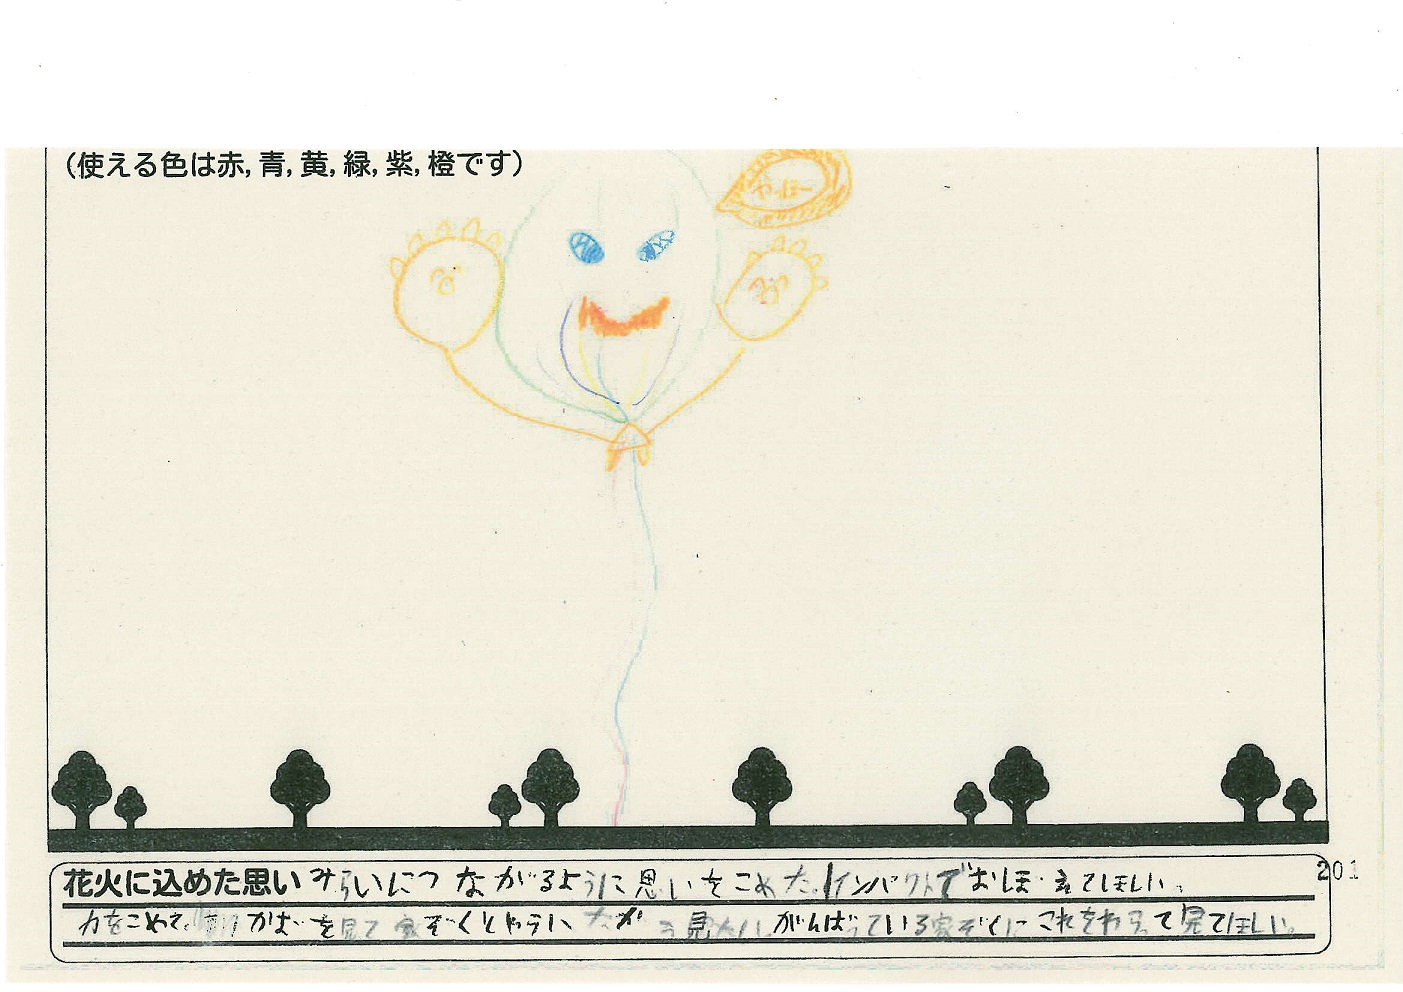 (使える色は赤, 青, 黄, 緑, 紫, 橙です)
やっほー
花火に込めた思い みらいにつながるように思いをこめた。インパクトでおぼえてほしい。
201
力をこめて、 かおを見て家ぞくとやらい 見たい がんばっている家ぞくにこれをわらって見てほしい。